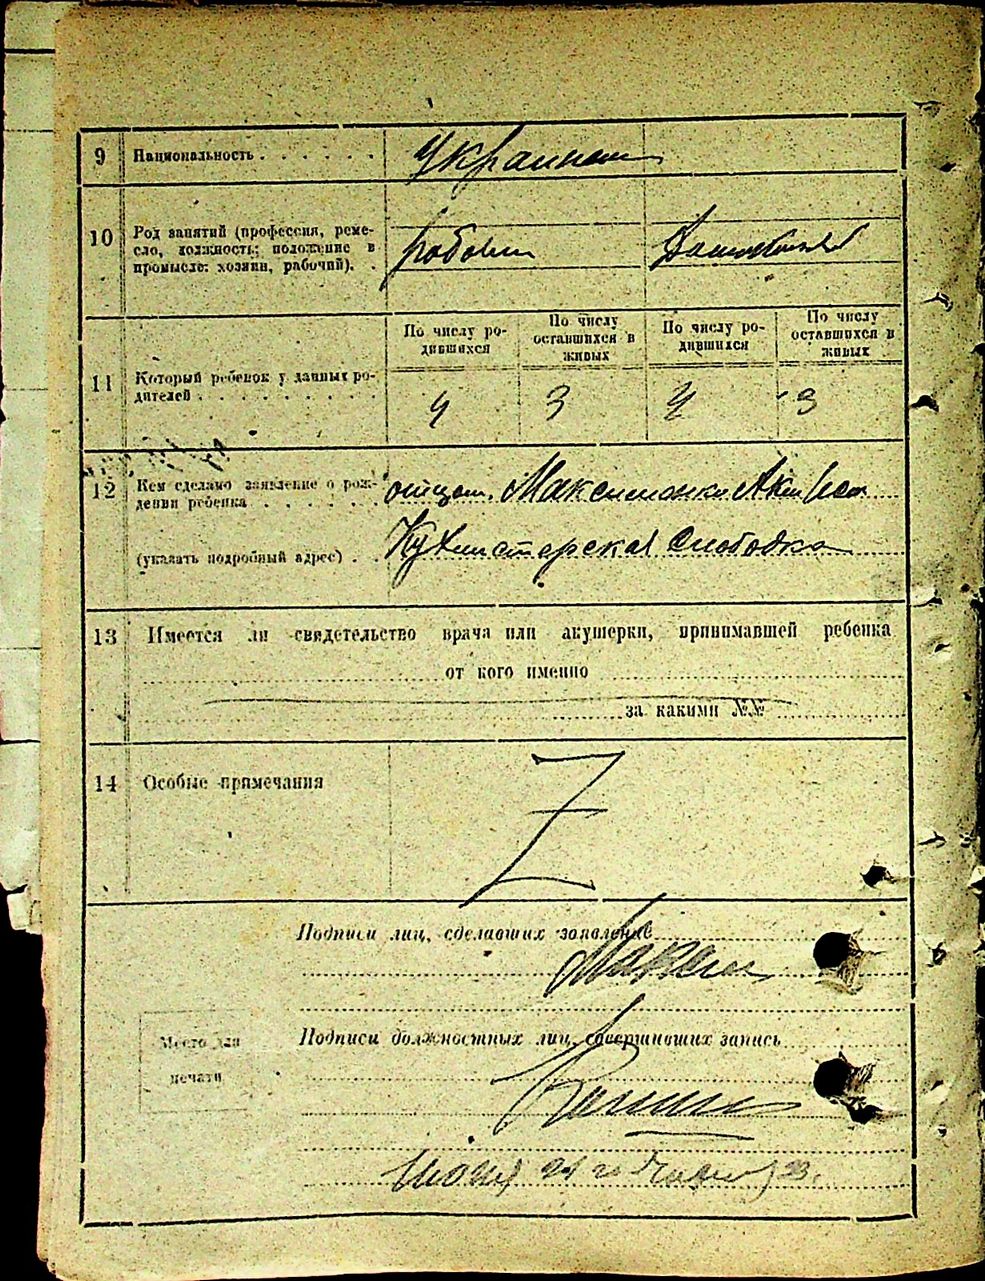 9 Национальность . . . . . .
10 Род занятий (профессия, реме-
сло, должность; положение в
промысле: хозяин, рабочий). .
По числу ро-
дившихся
По числу
оставшихся в
живых
По числу ро-
дившихся
По числу
оставшихся в
живых
11 Который ребенок у данных ро-
дителей . . . . . . . . . .
4 3 4 3
12 Кем сделано заявление о рож-
дении ребенка . . . . . . . отцом. Максименко
(указать подробный адрес) . . Кухмистерская Слободка
13 Имеется ли свидетельство врача или акушерки, принимавшей ребенка
от кого именно
за какими №№
14 Особые примечания
Z
Подписи лиц, сделавших заявление
Подписи должностных лиц, совершивших запись
Место для
печати